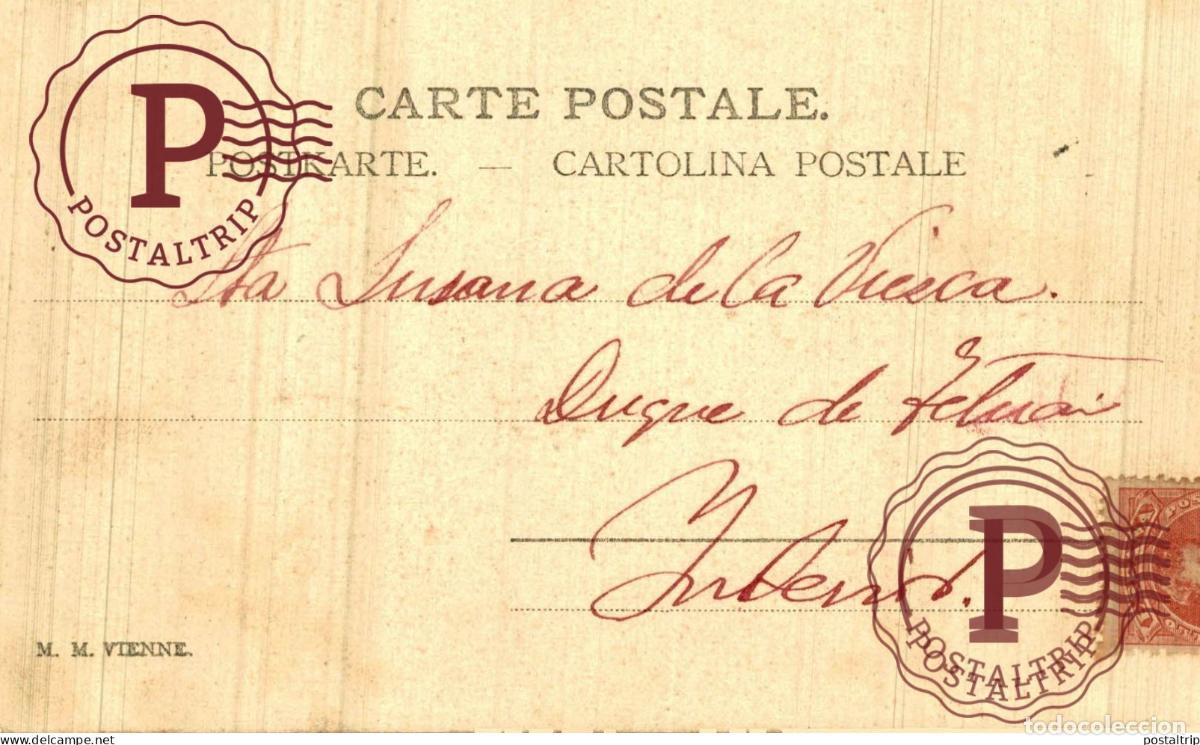 CARTE POSTALE.
POSTKARTE. — CARTOLINA POSTALE
P
POSTALTRIP
Sta Susana de la Viesca.
Duque de Tetuan
P
POSTALTRIP
POSTALTRIP
M. M. VIENNE.
todocoleccion
www.delcampe.net
postaltrip